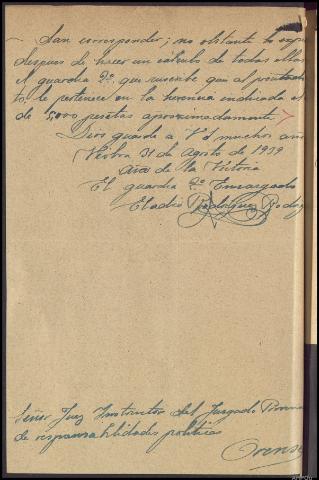 dan corresponder; no obstante lo exp
despues de hacer un cálculo de todas ellas
el guardia 2º que suscribe que al
to, le pertenece en la herencia indicada
de 5,000 pesetas aproximadamente
Dios guarde a Vd muchos
31 de Agosto de 1939
Año de la Victoria
El guardia 2º Encargado
Eladio Rodriguez Rodrig
Señor Juez Instructor del Juzgado
de responsabilidades politicas
Orense